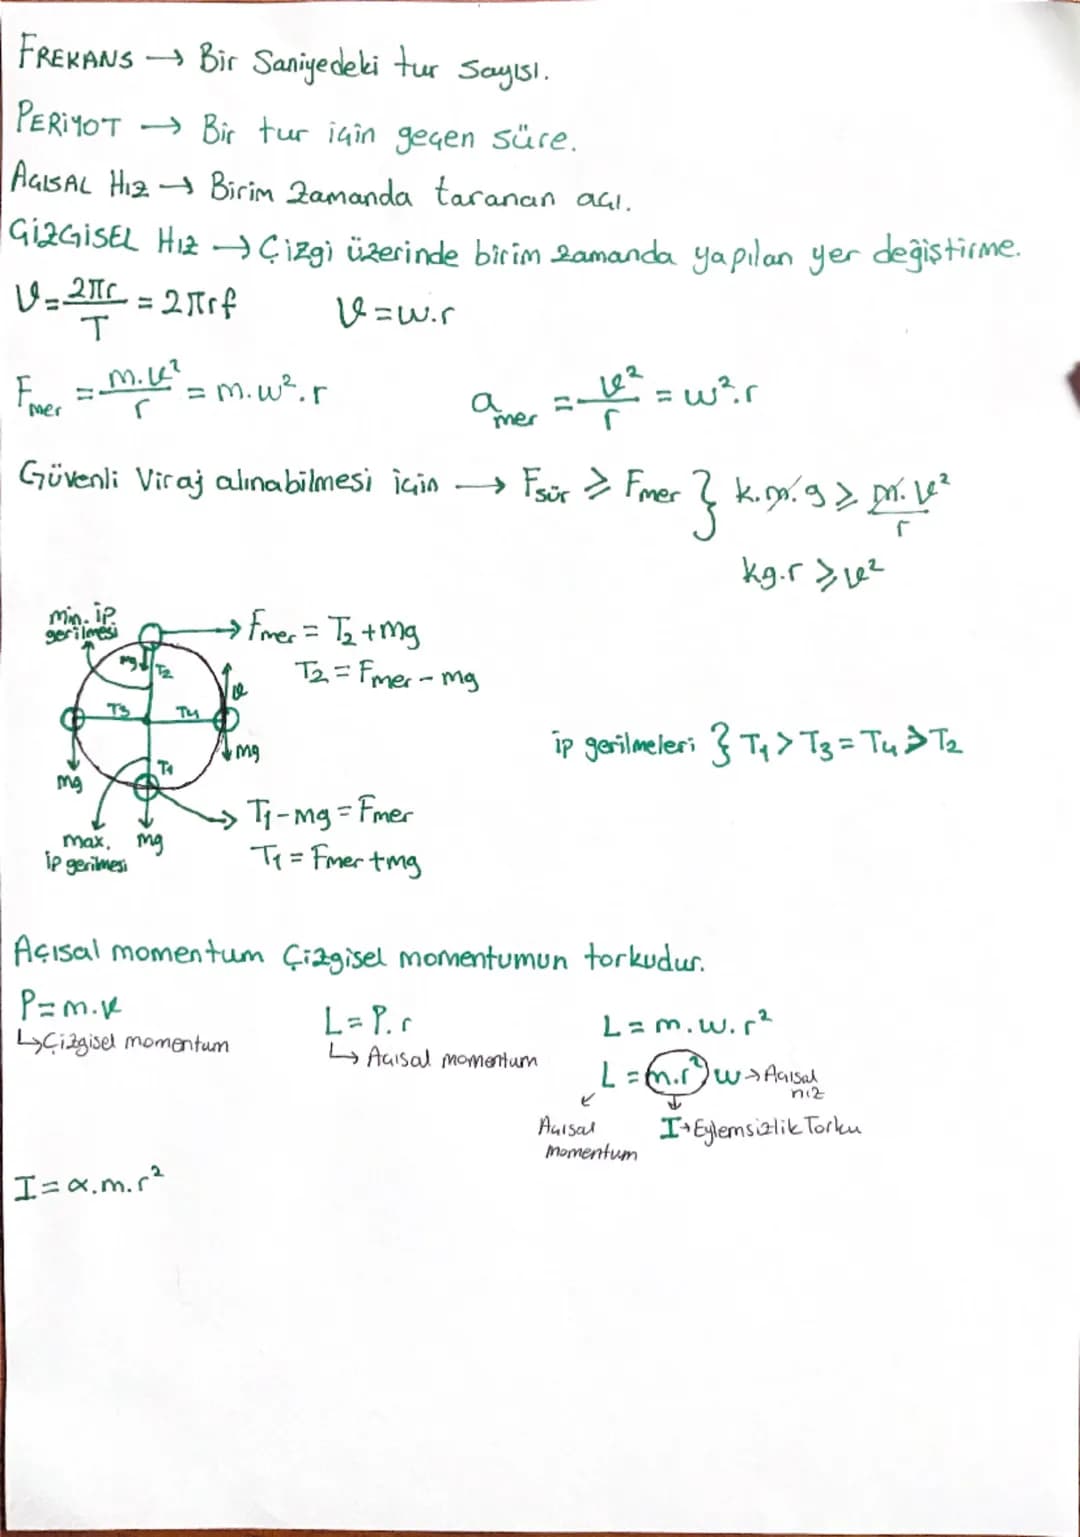 FREKANS → Bir Saniyedeki tur sayısı.
PERİYOT → Bir tur için geçen süre.
AÇISAL HIZ → Birim zamanda taranan açı.
ÇİZGİSEL HIZ → Çizgi üzerinde birim zamanda yapılan yer değiştirme.
V = 2πr/T = 2πrf V = w.r
Fmer = m.v²/r = m.w².r amer = v²/r = w².r
Güvenli Viraj alınabilmesi için → Fsür ≥ Fmer } k.m.g ≥ m.v²/r
kg.r ≥ v²
min. ip gerilmesi
mg T2
Fmer = T2 + mg
T2 = Fmer - mg
T3 T4 v
mg mg
T1
ip gerilmeleri } T1 > T3 = T4 > T2
T1 - mg = Fmer
T1 = Fmer + mg
max. ip gerilmesi
mg
Açısal momentum Çizgisel momentumun torkudur.
P = m.v L = P.r L = m.w.r²
↳ Çizgisel momentum ↳ Açısal momentum
L = m.r² w → Açısal hız
Açısal momentum
I → Eylemsizlik Torku
I = α.m.r²